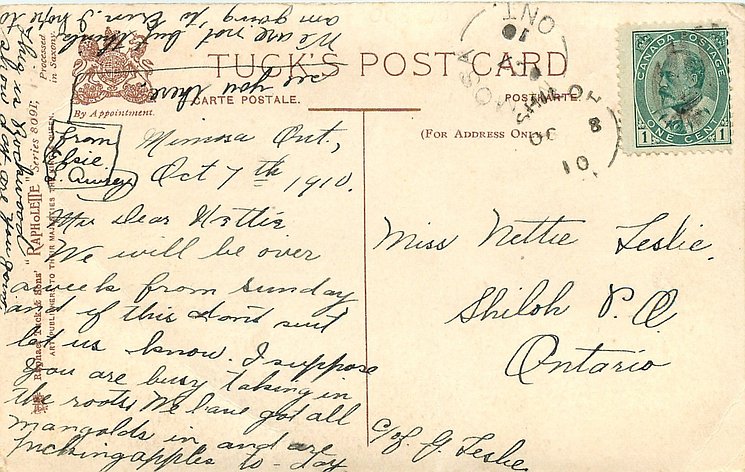 TUCK'S POST CARD
CARTE POSTALE.
POSTKARTE.
By Appointment.
(FOR ADDRESS ONLY)
Raphael Tuck & Sons' "RAPHOLETTE" Series 8091.
ART PUBLISHERS TO THEIR MAJESTIES THE KING QUEEN.
Processed
in Saxony.
CANADA POSTAGE
1 ONE CENT 1
ONT
MIMOSA
OC 8
10
SHILOH
from
Elsie
Mimosa Ont,
Oct 7th 1910.
My Dear Nettie
We will be over
a week from Sunday
and if this dont suit
let us know. I suppose
you are busy taking in
the roots We have got all
mangolds in and are
picking apples to-day
We are not but think
am going to Erin. I hope
see you there
Miss Nettie Leslie.
Shiloh P.O
Ontario
c/of G. Leslie